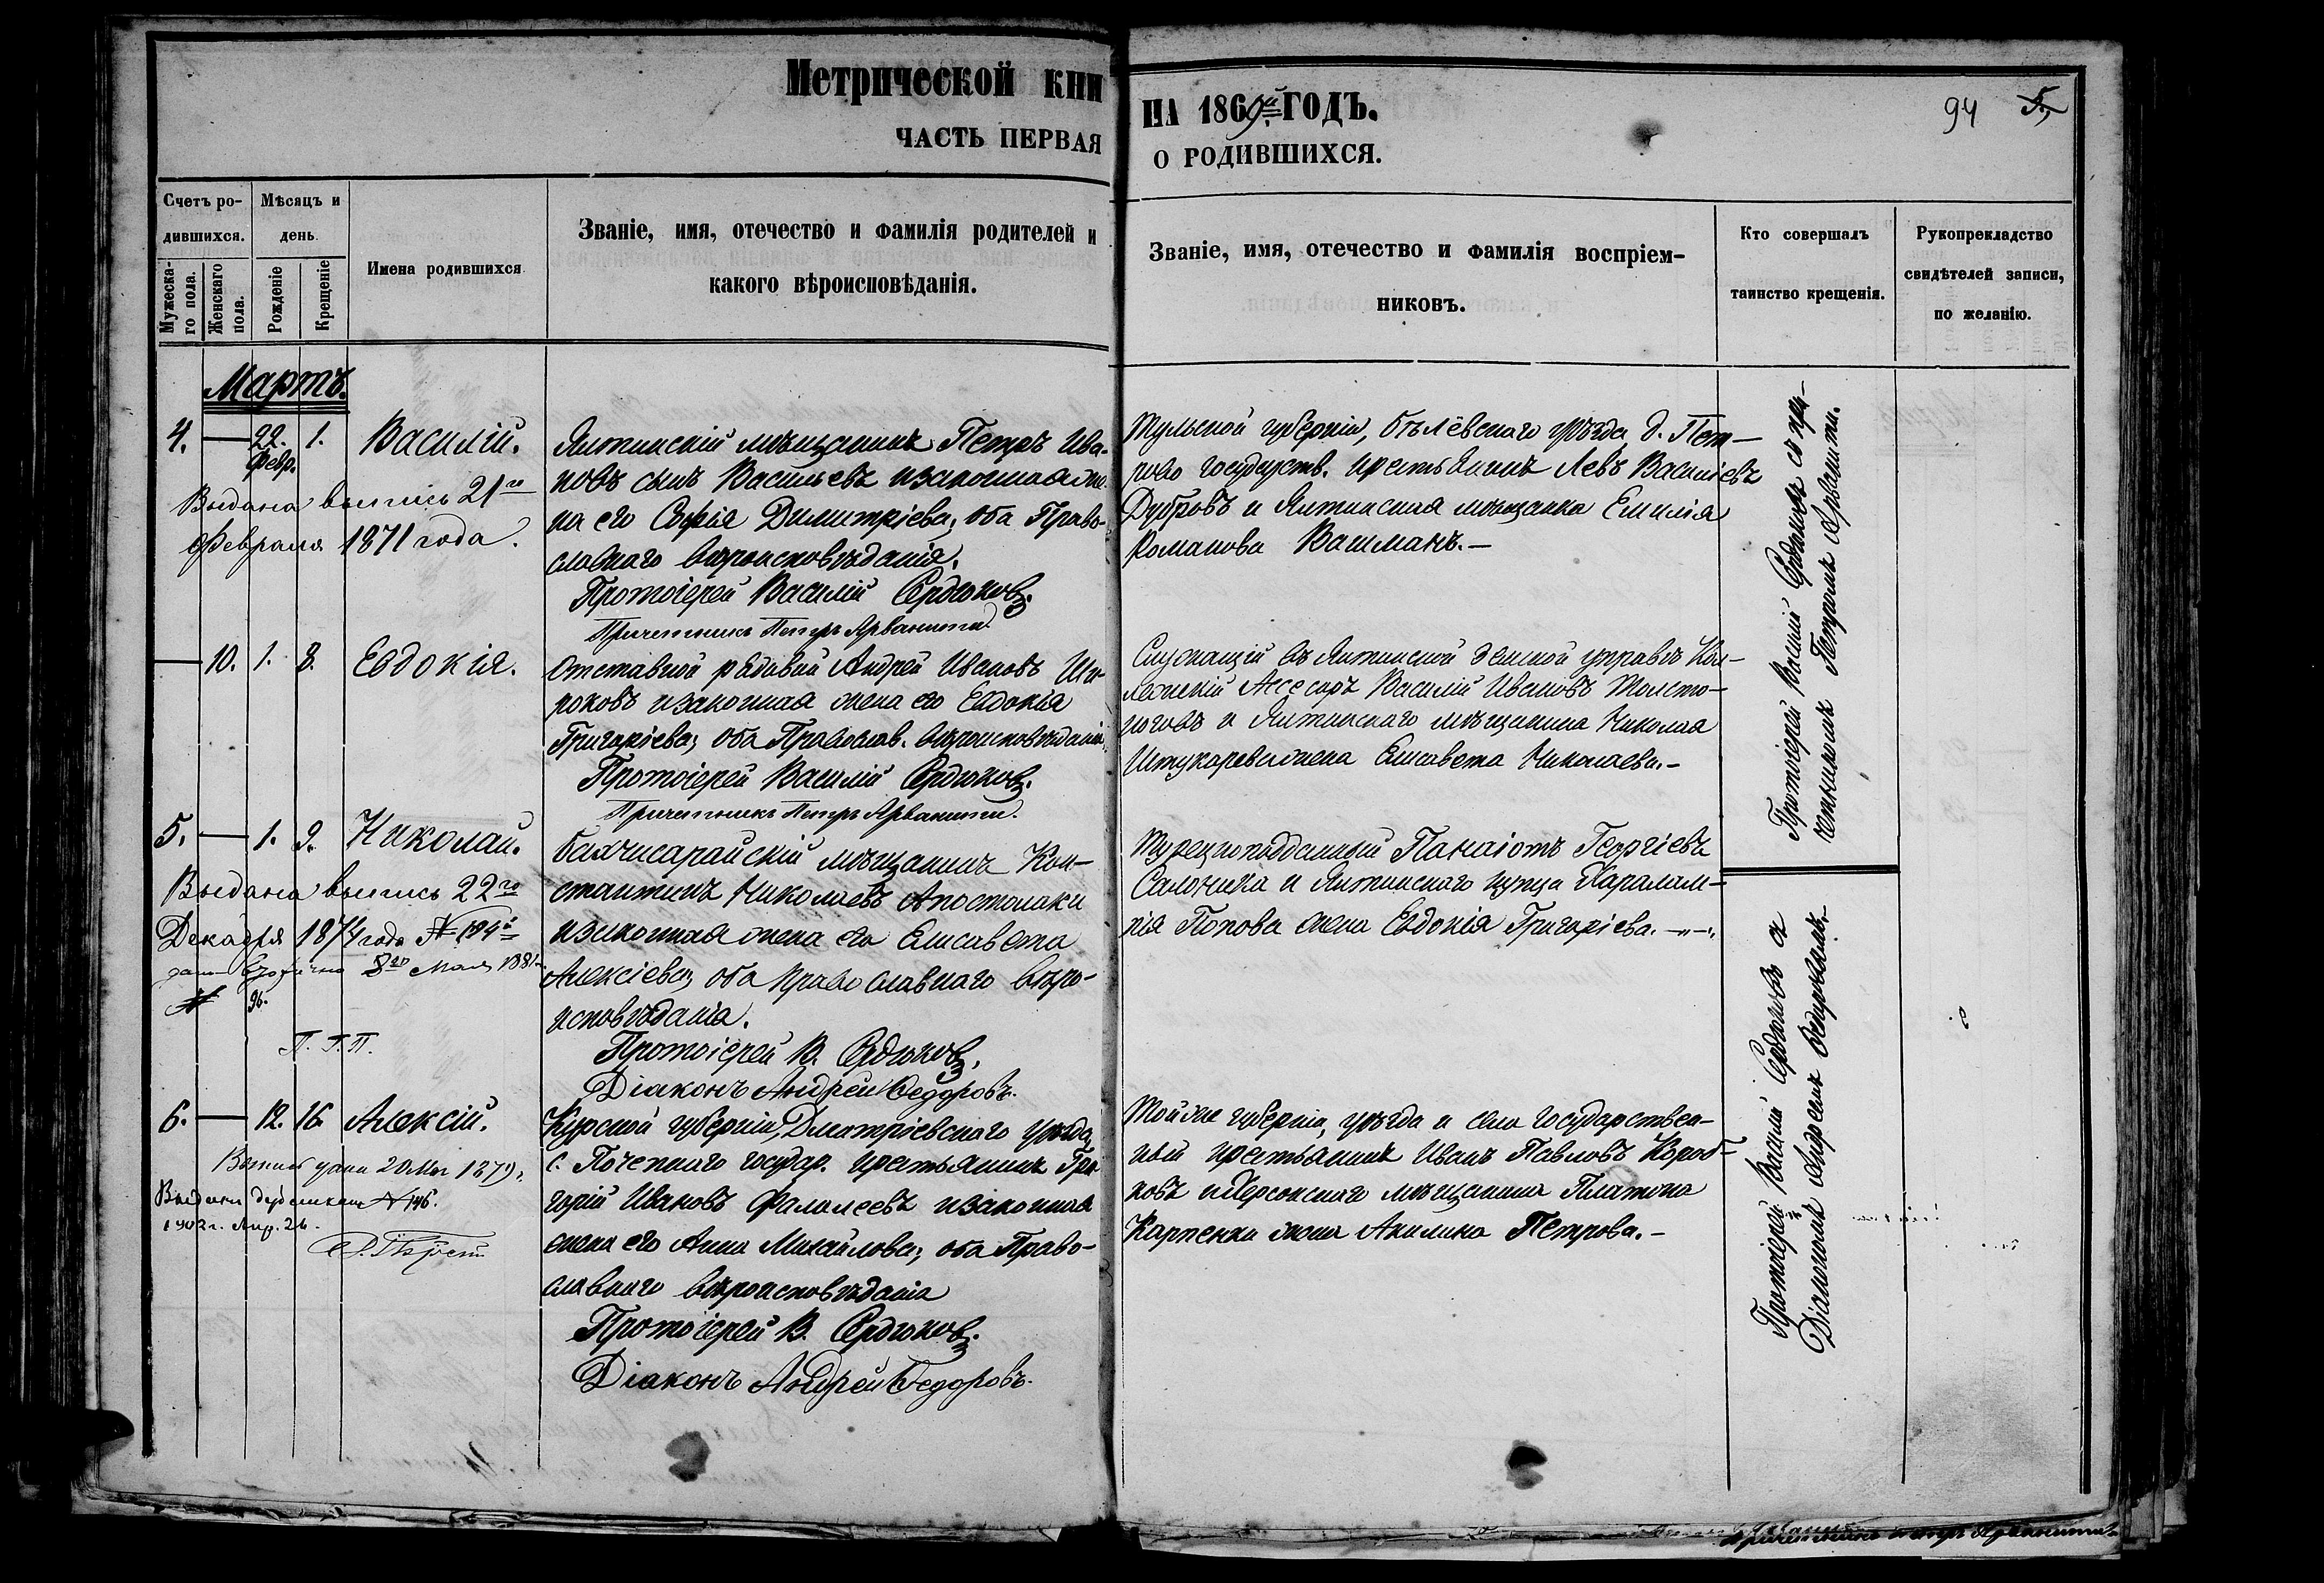 Метрической кни
НА 1869й ГОДЪ.
94 5,
ЧАСТЬ ПЕРВАЯ
О РОДИВШИХСЯ.
Счетъ ро-
дившихся.
Мужеска-
го пола.
Женскаго
пола.
Мѣсяцъ и
день.
Рожденіе
Крещеніе
Имена родившихся
Званіе, имя, отечество и фамилія родителей и
какого вѣроисповѣданія.
Званіе, имя, отечество и фамилія воспріем-
никовъ.
Кто совершалъ
таинство крещенія.
Рукопрекладство
свидѣтелей записи,
по желанію.
Мартъ.
4. — 22. 1. Василій.
Февр.
Выдана выпись 21го
Февраля 1871 года.
Ялтинскій мѣщанинъ Петръ Ива-
новъ сынъ Васильевъ и законная же-
на его Софія Димитріева, оба Право-
славнаго вѣроисповѣданія.
Протоіерей Василій Сердюковъ.
Причетникъ Петръ Арванити.
Тульской губерніи, Бѣлёвскаго уѣзда, д. Пет-
рово государств. крестьянинъ Левъ Василіевъ
Дубровъ и Ялтинская мѣщанка Емилія
Романова Вашманъ.—
— 10. 1. 8. Евдокія.
Отставной рядовой Андрей Ивановъ Ши-
роковъ и законная жена его Евдокія
Григоріева, оба Православ. вѣроисповѣданія.
Протоіерей Василій Сердюковъ.
Причетникъ Петръ Арванити.
Служащій въ Ялтинской земской управѣ Кол-
лежскій Ассесоръ Василій Ивановъ Толсто-
ноговъ и Ялтинскаго мѣщанина Николая
Штукорева жена Елисавета Николаева.—
Протоіерей Василій Сердюковъ съ при-
четникомъ Петромъ Арванити.
5. — 1. 9. Николай.
Выдана выпись 22го
Декабря 1874 года №
8го Мая 1881
№ 96.
П. Г. П.
Бахчисарайскій мѣщанинъ Кон-
стантинъ Николаевъ Апостолаки
и законная жена его Елисавета
Алексіева, оба православнаго вѣро-
исповѣданія.
Протоіерей В. Сердюковъ.
Діаконъ Андрей Ѳедоровъ.
Турецкоподданный Панаіотъ Георгіевъ
Салоника и Ялтинскаго купца Харалам-
пія Попова жена Евдокія Григоріева.—"—"
6. — 12. 16. Алексій.
дана 20 1879 г.
Выданъ дубликатъ № 146.
1902 г. Апр. 26.
Курской губерніи, Дмитріевскаго уѣзда,
с. Почепнаго государ. крестьянинъ Гри-
горій Ивановъ Фалалеевъ и законная
жена его Анна Михайлова, оба Право-
славнаго вѣроисповѣданія
Протоіерей В. Сердюковъ.
Діаконъ Андрей Ѳедоровъ.
Той же губерніи, уѣзда и села государствен-
ный крестьянинъ Иванъ Павловъ Короб-
ковъ и Херсонскаго мѣщанина Платона
Карпенка жена Акилина Петрова.—
Протоіерей Василій Сердюковъ съ
Діакономъ Андреемъ Ѳедоровымъ.—
Причетникъ Петръ Арванити